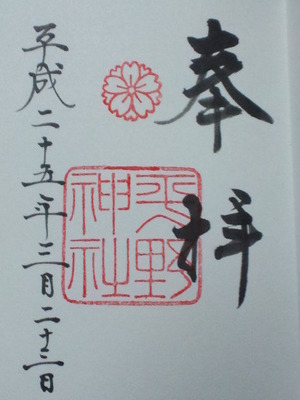 奉拝
平野
神社
平成二十五年三月二十三日